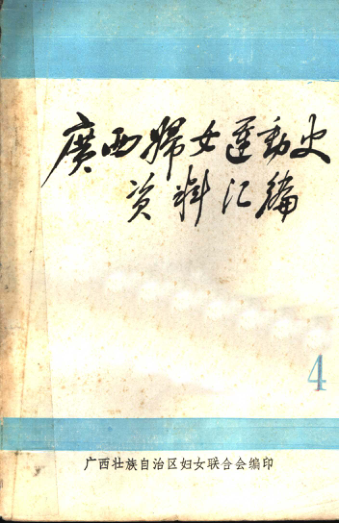 廣西婦女運動史
资料汇编
4
广西壮族自治区妇女联合会编印